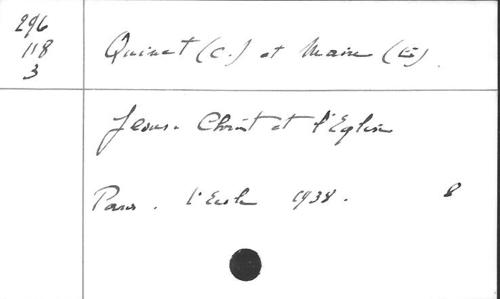 296
118
3
Quinet (C.) et Maire (E).
Jésus-Christ et l'Eglise
Paris. l'Ecole 1938. 8